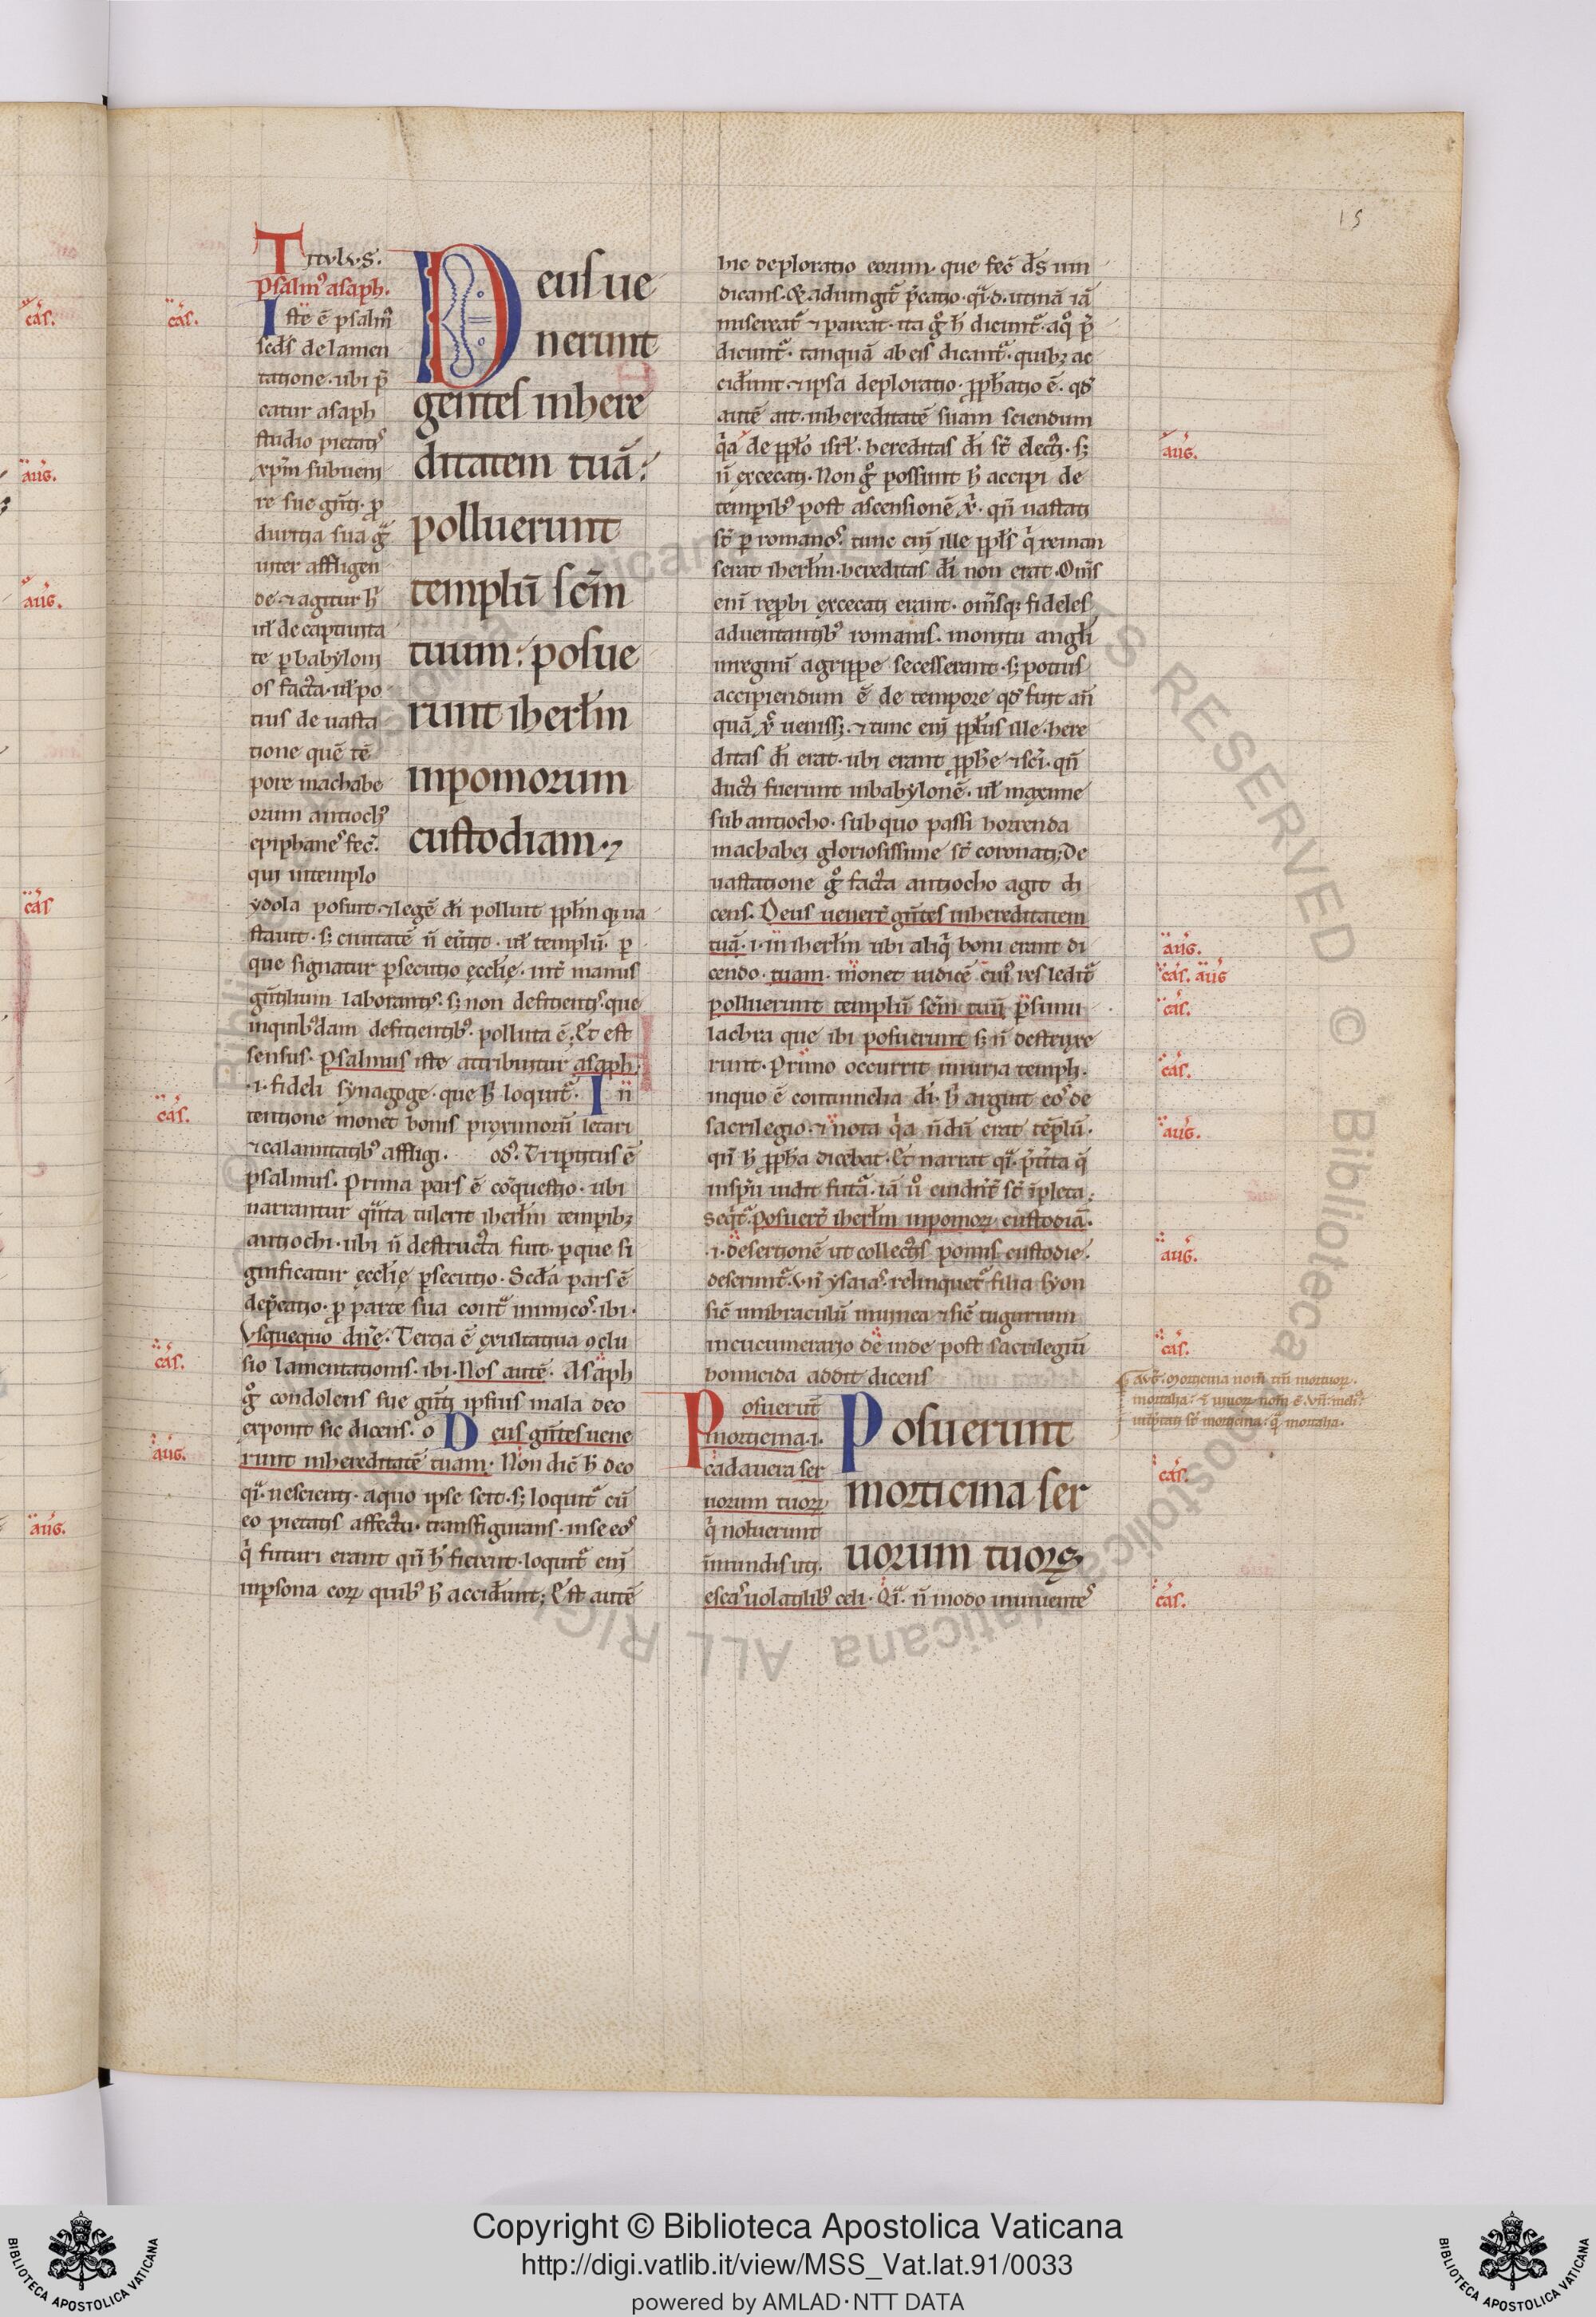 15
Titulus.
psalm᷒ asaph.
Iste ē psalm᷒
scd̄s de lamen
tatione. ubi p̄
catur asaph
studio pietatis
xp̄m subueni
re sue gn̄ti. p
duritia sua
iuter affligen
de. ⁊ agitur h̄
ul̄ de captiuita
te p babyloni
os facta. ul̄ po
tius de uasta
tione quē tē
pore machabe
orum antioch᷒
epiphanes fec̄.
qui in templo
ydola posuit. ⁊ legē dī polluit
stauit. s; ciuitatē n̄ ul̄ templū. p
que signatur psecutio ęcclię. int̄ manus
gn̄tilium laborantis. s; non deficientis. que
in quibusdam deficientib᷒. polluta ē. Et est
sensus. psalmus iste attribuitur asaph.
.i. fideli synagoge. que h̄ loquit᷑. In
tentione monet bonis proximorū letari
⁊ calamitatib᷒ affligi. od᷒. Tripititus ē
psalmus. Prima pars ē cōquestio. ubi
narrantur quāta tulerit iherłm tempib;
antiochi. ubi n̄ destructa fuit. p que si
gnificatur ęcclię psecutio. Scd̄a pars ē
dep̄catio. p parte sua cont̄ inimicos. ibi.
Vsquequo dn̄e. Tercia ē exultatiua ɔclu
sio lamentationis. ibi. Nos autē. Asaph
gͦ condolens sue gn̄ti ipsius mala deo
exponit sic dicens. o Deus gn̄tes uene
runt in hereditatē tuam. Non dic̄ h̄ deo
qͣ. nescienti. a quo ipse scit. s; loquit᷑ cū
eo pietatis affectu. transfigurans. in se eos
qͥ futuri erant qn̄ h̄ fierent. loquit᷑ enī
in psona eoꝝ quib᷒ h̄ acciderunt; Est autē
Deus ue
nerunt
gentes in here
ditatem tuā:
polluerunt
templū scm̄
tuum: posue
runt iherłm
in pomorum
custodiam.
hic deploratio eorum. que fec̄ ds̄ uin
dicans. & adiungit᷑ p̄catio. qͣ.d. utinā iā
misereat᷑ ⁊ parcat. ita gͦ h̄ dicunt᷑. a qͦ
dicunt᷑. tanquā ab eis dicant᷑. quib; ac
cidunt. ⁊ ipsa deploratio. p̄phatio ē. qd̓
autē ait. in hereditatē suam sciendum
qͥa de pplo isrł. hereditas dī st̄ electi. s;
n̄ excecati. Non gͦ possunt h̄ accipi de
temporib᷒ post ascensionē x̄. qn̄ uastati
st̄ p romanos. tunc enī ille ppłs qͥ reman
serat iherłm. hereditas dī non erat. Om̄s
enī repbi excecati erant. omnesq; fideles
aduentantib᷒ romanis. monitu angłi
in regnū agrippe secesserant. s; potius
accipiendum ē de tempore qd̓ fuit an̄
quā x̄ uenisset. ⁊ tunc enī ppłus ille. here
ditas dī erat. ubi erant pphe ⁊ sc̄i. qn̄
ducti fuerunt in babylonē. ul̄ maxime
sub antiocho. sub quo passi horrenda
machabei gloriosissime st̄ coronati; De
uastatione gͦ facta antiocho agit di
cens. Deus uener̄ gn̄tes in hereditatem
tuā. .i. in iherłm ubi aliqͥ boni erant di
cendo. tuam. monet iudicē cui᷒ res ledit᷑
polluerunt templū scm̄ tuū p simu
lachra que ibi posuerunt s; n̄ destruxe
runt. Primo occurrit iniuria templi.
in quo ē contumelia dī. h̄ arguit eos de
sacrilegio. ⁊ nota qͥa n̄dū erat tēplū.
qn̄ h̄ ppha dicebat. Et narrat qͣ. p̄tita qͥ
in spū uidit futa. iā ū euident̄ st̄ īpleta.
Seqt᷑. posuer̄ iherłm in pomoꝝ custodiā.
.i. desertionē ut collectis pomis custodie
deserunt᷑. Vn̄ ysaias. relinquet᷑ filia syon
sic̄ umbraculū in uinea ⁊ sic̄ tugurium
in cucumerario deinde post sacrilegiū
homicida addit dicens
Posuerunt
morticina .i.
cadauera ser
uorum tuoꝝ
qͥ noluerunt
īmundis uti.
escas uolatilib᷒ celi. Qͣ. n̄ modo in uiuentes
Posuerunt
morticina ser
uorum tuoꝝ
cas.
cas.
cas.
aug.
aug.
aug.
cas. aug
cas.
cas.
aug.
aug.
cas.
Auḡ. morticina
cas.
cas.
cas.
aug.
aug.
cas
aug.
Copyright © Biblioteca Apostolica Vaticana
http://digi.vatlib.it/view/MSS_Vat.lat.91/0033
powered by AMLAD·NTT DATA
BIBLIOTECA APOSTOLICA VATICANA
BIBLIOTECA APOSTOLICA VATICANA
© Biblioteca Apostolica Vaticana ALL RIGHTS RESERVED